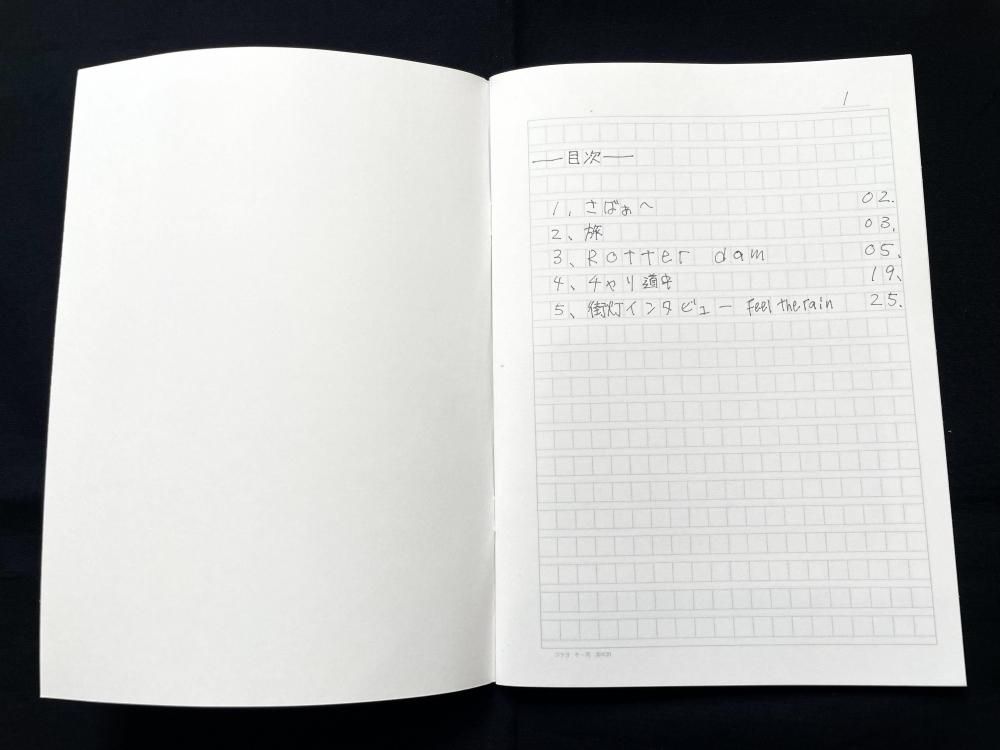 1
——目次——
1, さばぁへ 02.
2、旅 03.
3、Rotter dam 05.
4、チャリ道中 19、
5、街灯インタビュー Feel the rain 25.
コクヨ